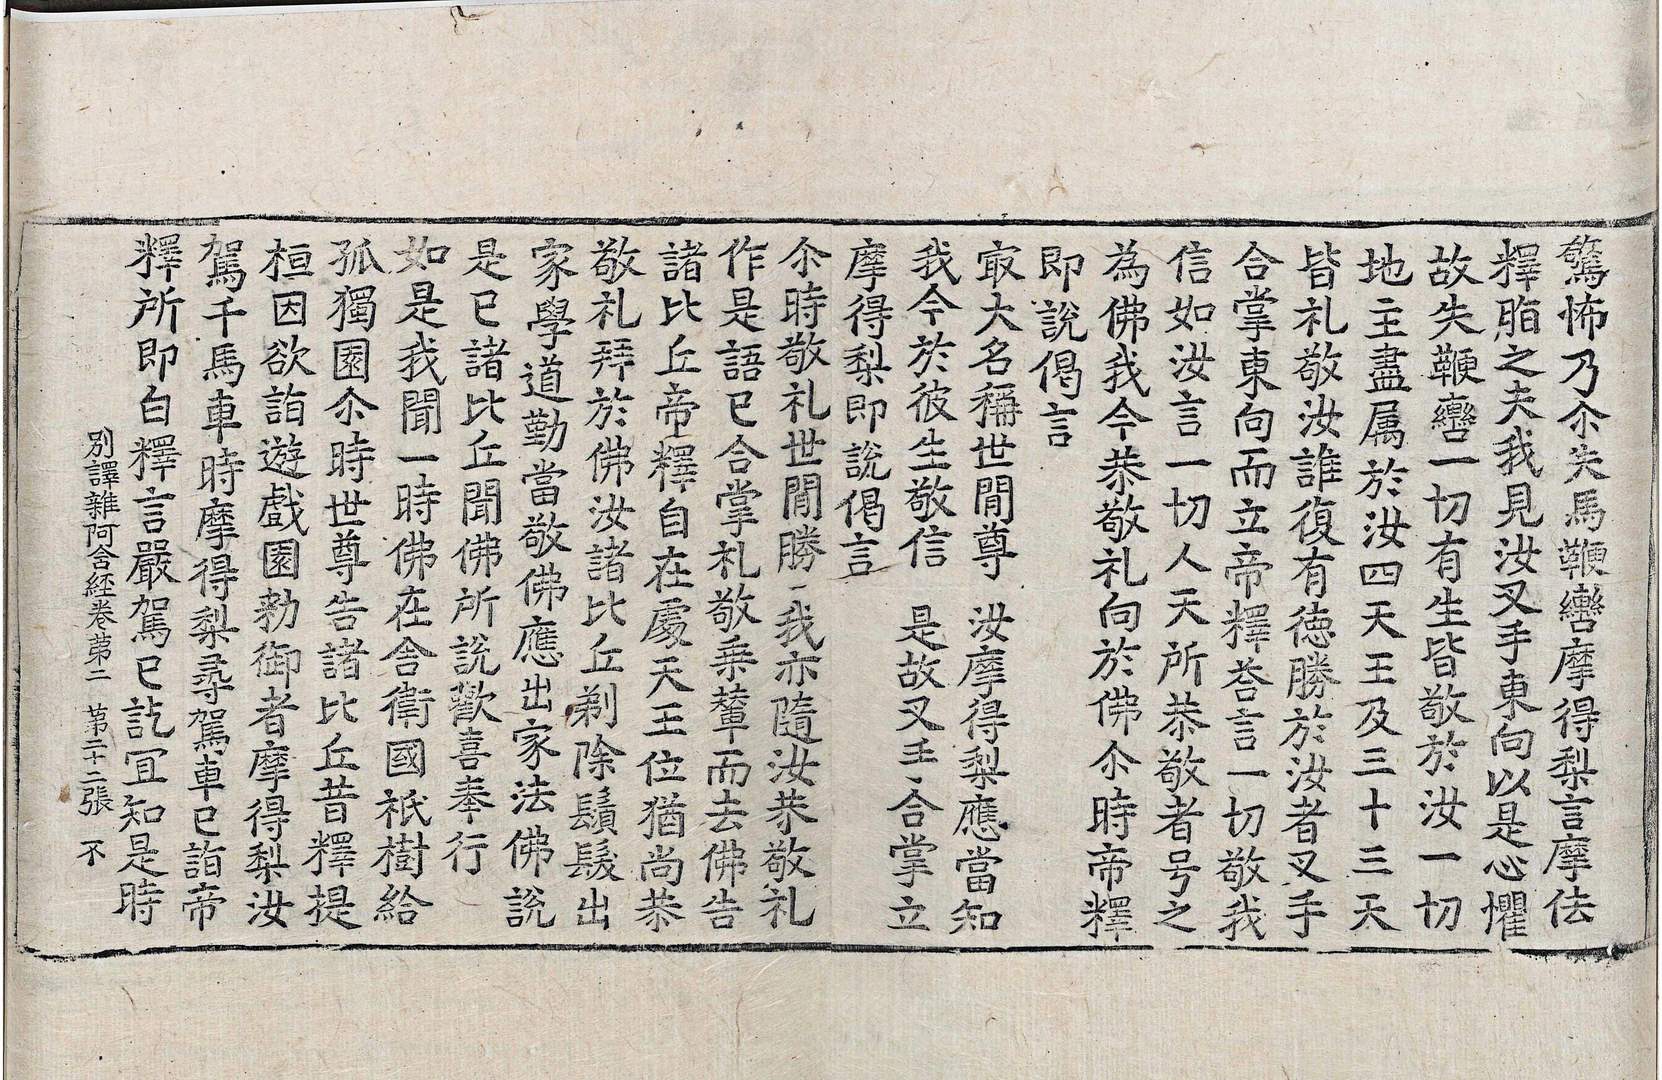 驚怖乃尒失馬鞭轡摩得梨言摩佉
釋脂之夫我見汝叉手東向以是心懼
故失鞭轡一切有生皆敬於汝一切
地主盡属於汝四天王及三十三天
皆礼敬汝誰復有徳勝於汝者叉手
合掌東向而立帝釋荅言一切敬我
信如汝言一切人天所恭敬者号之
為佛我今恭敬礼向於佛尒時帝釋
即說偈言
冣大名稱世閒尊　汝摩得梨應當知
我今於彼生敬信　是故叉手合掌立
摩得梨即說偈言
尒時敬礼世閒勝　我亦隨汝恭敬礼
作是語已合掌礼敬乗輦而去佛告
諸比丘帝釋自在處天王位猶尚恭
敬礼拜於佛汝諸比丘剃除鬚髮出
家學道勤當敬佛應出家法佛說
是已諸比丘聞佛所說歡喜奉行
如是我聞一時佛在舍衛國祇樹給
孤獨園尒時世尊告諸比丘昔釋提
桓因欲詣遊戲園勑御者摩得梨汝
駕千馬車時摩得梨尋駕車已詣帝
釋所即白釋言嚴駕已訖冝知是時
別譯雜阿含経卷苐二　苐二十二張　不